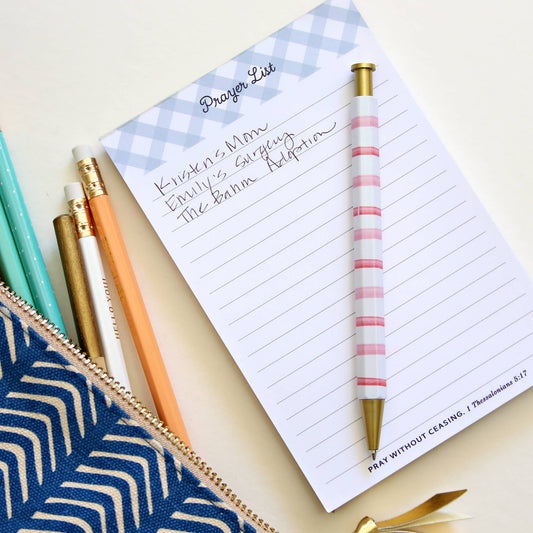 Prayer List
Kristen's Mom
Emily's Surgery
The Bahm Adoption
HELLO YOU
PRAY WITHOUT CEASING. 1 Thessalonians 5:17